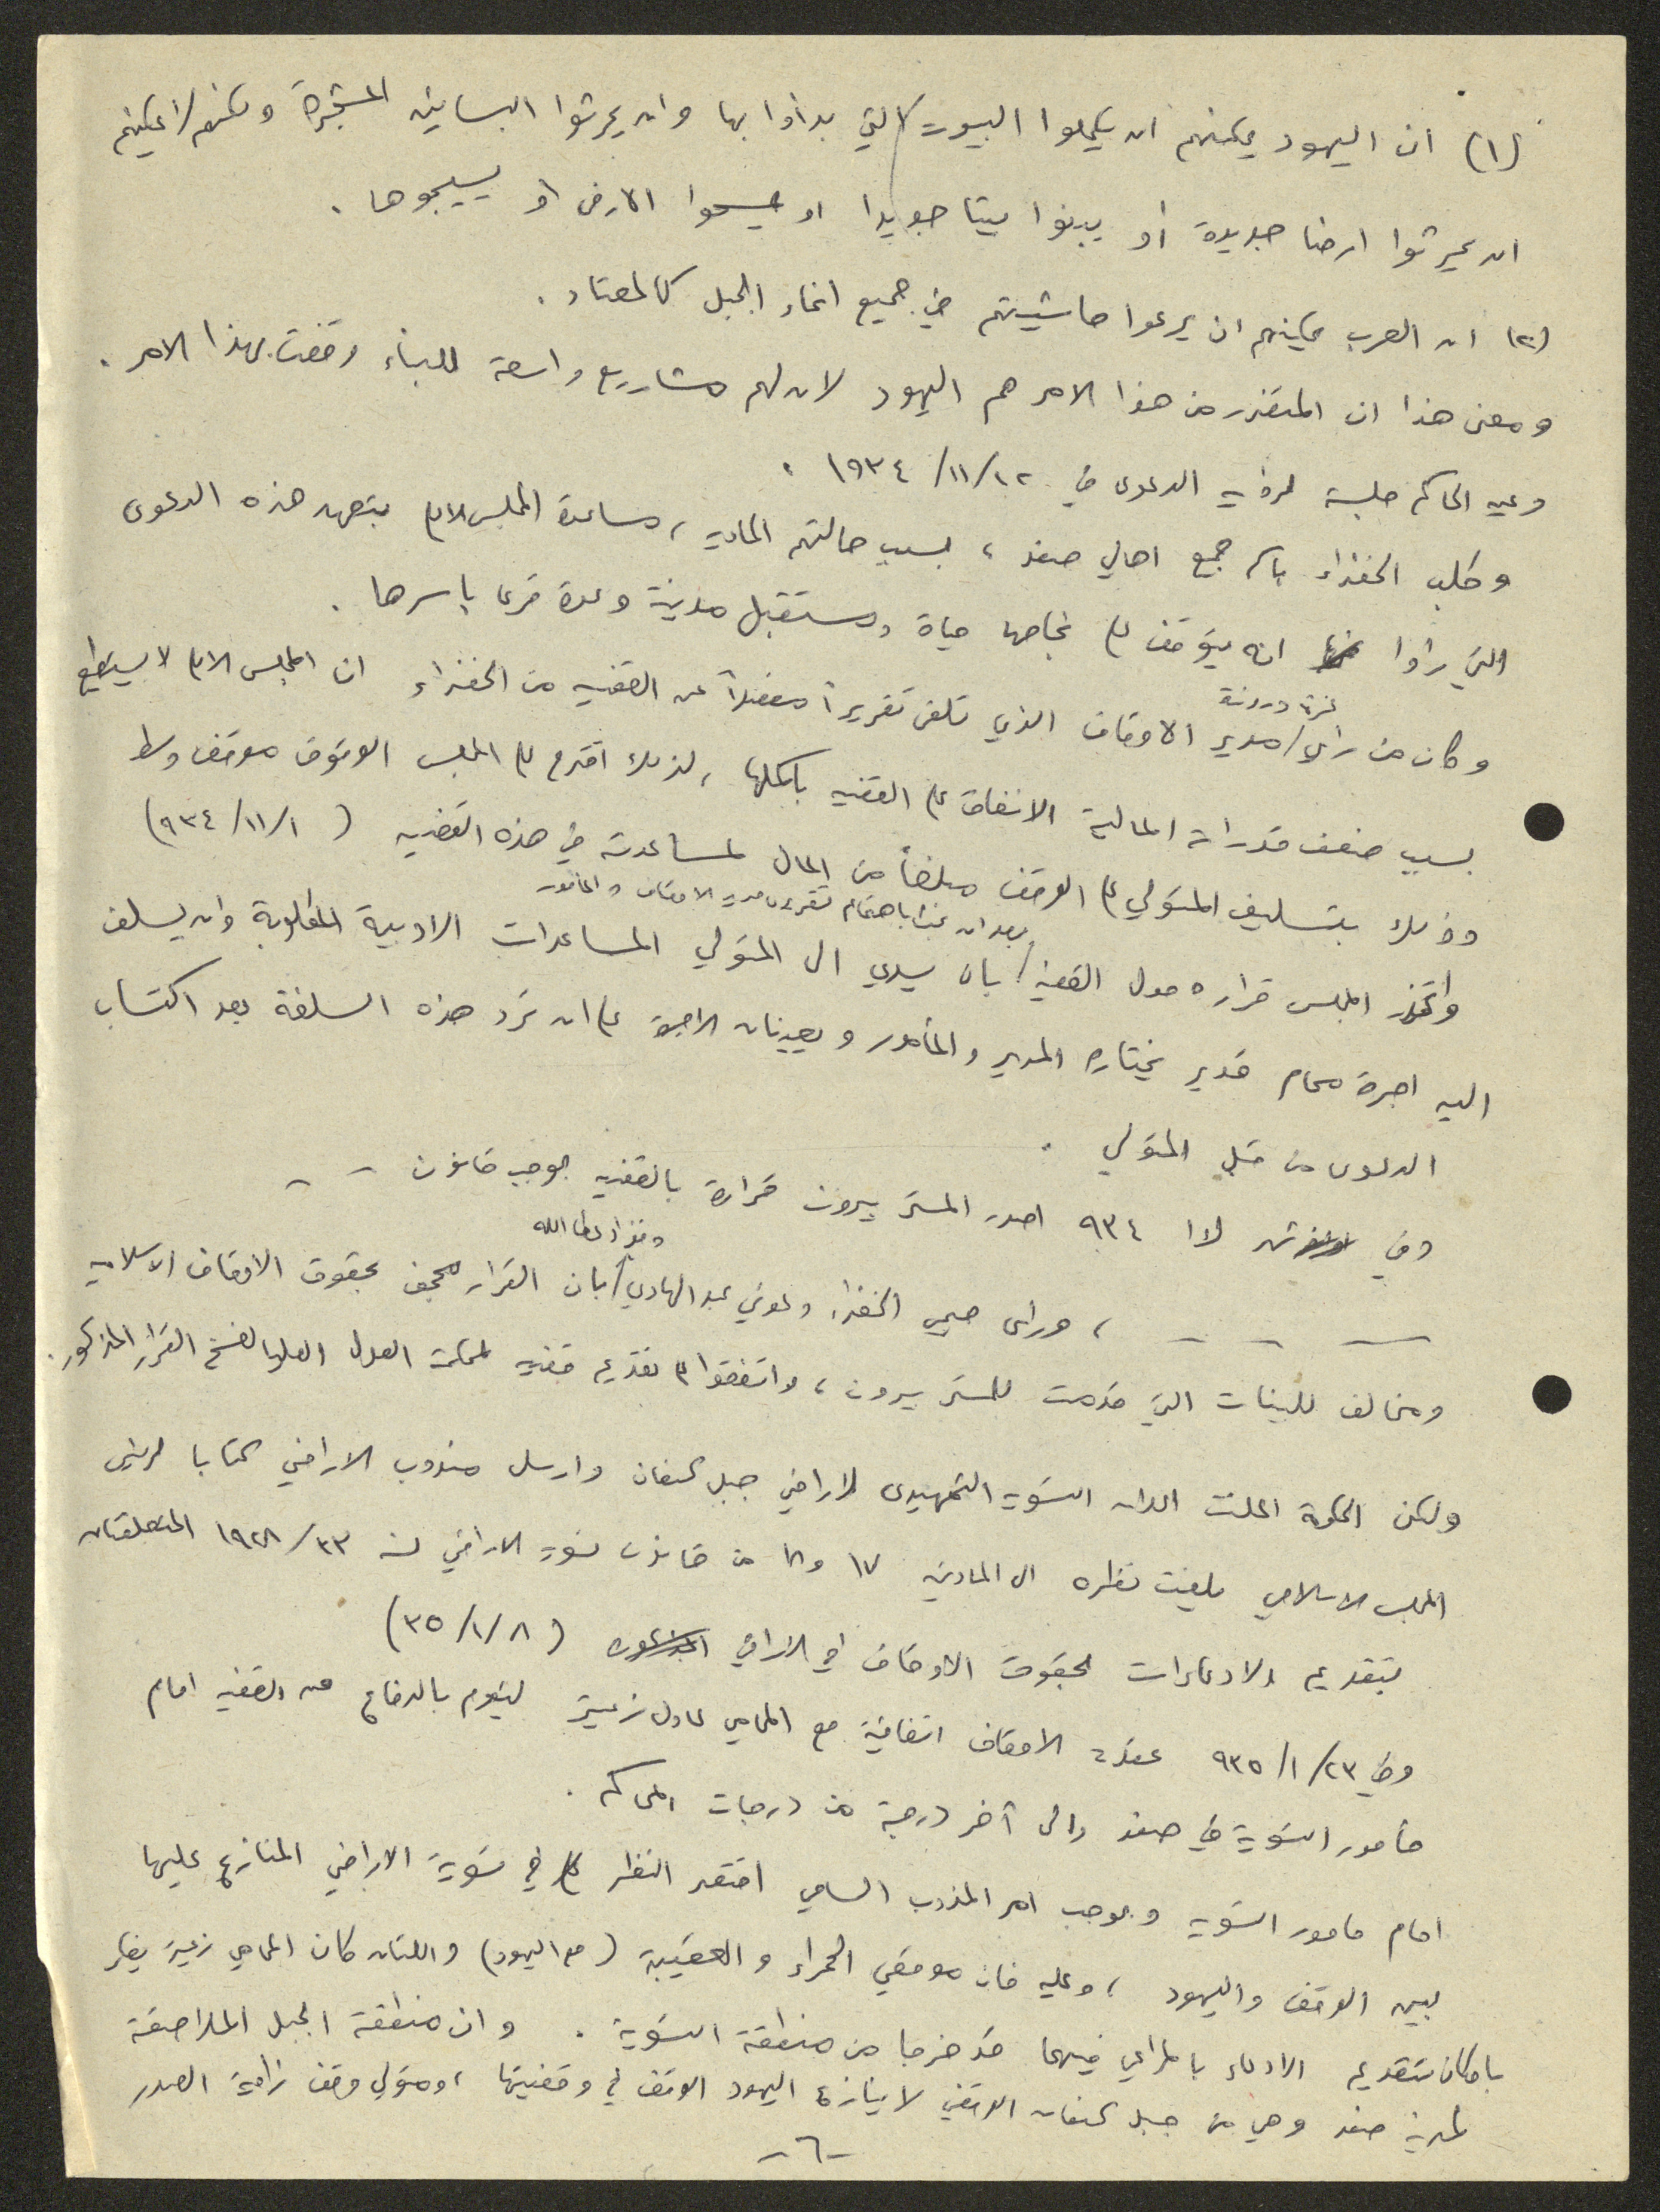 (١) ان اليهود يمكنهم ان يكملوا البيوت التي بدأوا بها وان يحرثوا البساتين المشجرة ولكنهم لا يمكنهم
ان يحرثوا ارضا جديدة أو يبنوا بيتا جديدا او يمسحوا الارض أو يسيجوها .
(٢) ان العرب يمكنهم ان يرعوا ماشيتهم في جميع انحاء الجبل كالمعتاد .
ومعنى هذا ان المتضرر من هذا الامر هم اليهود لان لهم مشاريع واسعة للبناء وقفت بهذا الامر .
وعين الحاكم جلسة لرؤية الدعوى في ١٢/١١/١٩٣٤ .
وطلب الخضراء باسم جميع اهالي صفد ، بسبب حالتهم المادية ، مساعدة المجلس الاعلى بتعهد هذه الدعوى
التي رأوا انه يتوقف على نجاحها حياة ومستقبل مدينة وعدة قرى باسرها .
وكان من رأي مدير الاوقاف الذي تلقى تقريراً مفصلاً عن القضية من الخضراء ان المجلس الاعلى لا يستطيع
بسبب ضعف قدراته المالية الانفاق على القضية بأكملها ، لذلك اقترح على المجلس الوقوف موقف وسط
وذلك بتسليف المتولي على الوقف مبلغاً من المال لمساعدته في هذه القضية (١/١١/٩٣٤)
بعد ان باهتمام تقريري مدير الاوقاف والمأمور
واتخذ المجلس قراره حول القضية بأن يسدي الى المتولي المساعدات الادبية المطلوبة وان يسلف
اليه اجرة محام قدير يختاره المدير والمأمور ويعينان الاجرة على ان ترد هذه السلفة بعد اكتساب
الدعوى من قبل المتولي .
وفي شهر ك١ ٩٣٤ اصدر المستر بيرون قراره بالقضية بموجب قانون - -
وفؤاد عطا الله
- - - ، ورأى صبحي الخضرا وعوني عبد الهادي بأن القرار مجحف بحقوق الاوقاف الاسلامية
ومخالف للبينات التي قدمت للمستر بيرون ، واتفقوا على تقديم قضية لمحكمة العدل العليا لفسخ القرار المذكور .
ولكن الحكومة اعلنت اعلان التسوية التمهيدي لاراضي جبل كنعان وارسل مندوب الاراضي كتابا لرئيس
المجلس الاسلامي يلفت نظره الى المادتين ١٧ و١٨ من قانون تسوية الاراضي لسنة ٣٣/١٩٢٨ المتعلقتان
بتقديم الادعاءات بحقوق الاوقاف في الاراضي (٨/١/٣٥)
وفي ٢٣/١/٩٣٥ عقدت الاوقاف اتفاقية مع المحامي عادل زعيتر ليقوم بالدفاع عن القضية امام
مأمور التسوية في صفد والى آخر درجة من درجات المحاكم .
امام مأمور التسوية وبموجب امر المندوب السامي اقتصر النظر في تسوية الاراضي المتنازع عليها
بين الوقف واليهود ، وعليه فان موقعي الحمراء والعقيبة (مع اليهود) واللتان كان المحامي زعيتر يفكر
بامكان تقديم الادعاء بالمراعي فيهما قد خرجا من منطقة التسوية . وان منطقة الجبل الملاصقة
لمدينة صفد وهي من جبل كنعان الوقفي لا ينازع اليهود الوقف في وقفيتها ، ومتولي وقف زاوية الصدر
-٦-